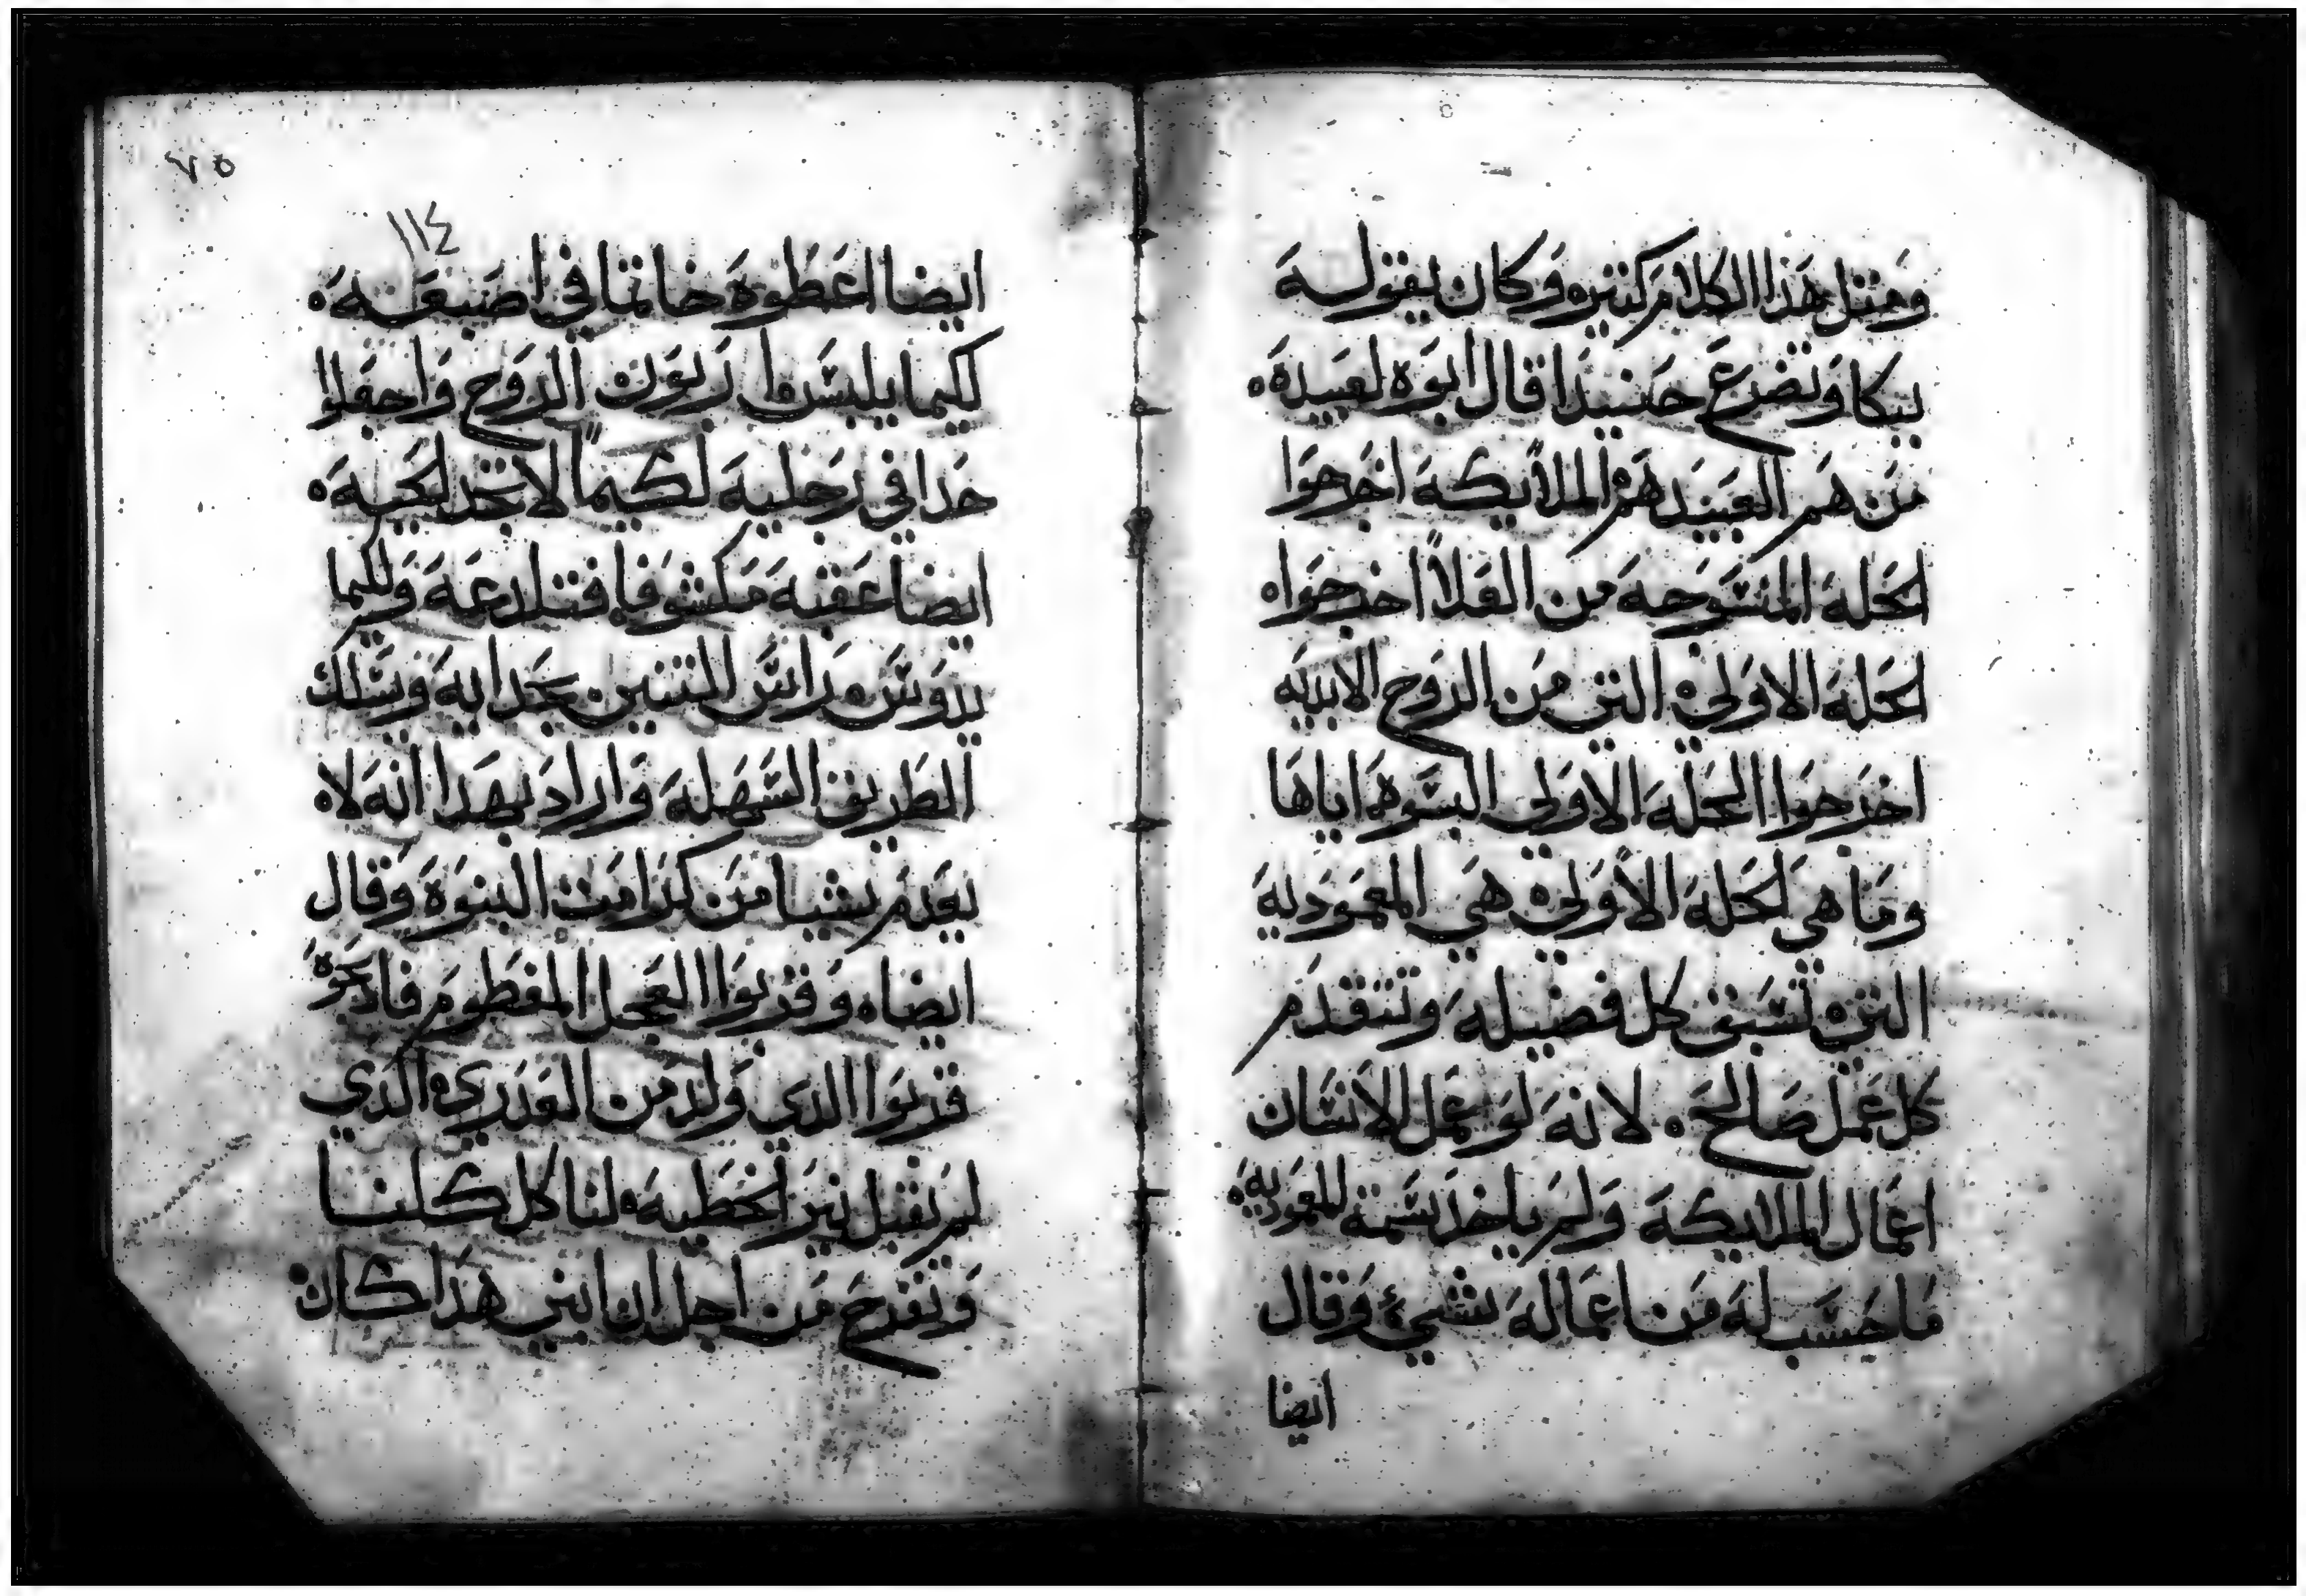 ومثل هذا الكلام كثيره وكان يقوله
ببكا وتضرع حنيیدا قال ابوه لعبيده
من هم العبيد هم الملايكة اخرجوا
الحلة المنسوجة من العلا اخرجوا
الحلة الاولي التي من الروح الابديه
اخرجوا الحلة الاولي البسوه اياها
وما هي الحلة الاولي هي المعمودية
التي تسبق كل فضيلة وتتقدم
كل عمل صالح لانه لو عمل الانسان
اعمال الملايكة ولم ياخذ سمة المعمودية
ما حسب له من اعماله شيء وقال
ايضا
٧٥
١١٤
ايضا اعطوه خاتما في اصبعه
كيما يلبس ربون الروح واجعلوا
حدا في رجليه لكيما لا تجد الحيه
ايضا عقبه مكشوفا فتلدغه وكيما
يدوس راس التنين بحدايه ويسلك
الطريق السهلة واراد بهدا انه لا
يعدم شيا من كرامت البنوة وقال
ايضا وقربوا العجل المفطوم فادبحوه
قربوا الدي ولد من العدري الدي
لم يقبل نير الخطية لناكل كلنا
ونفرح من اجل ان ابني هدا كان